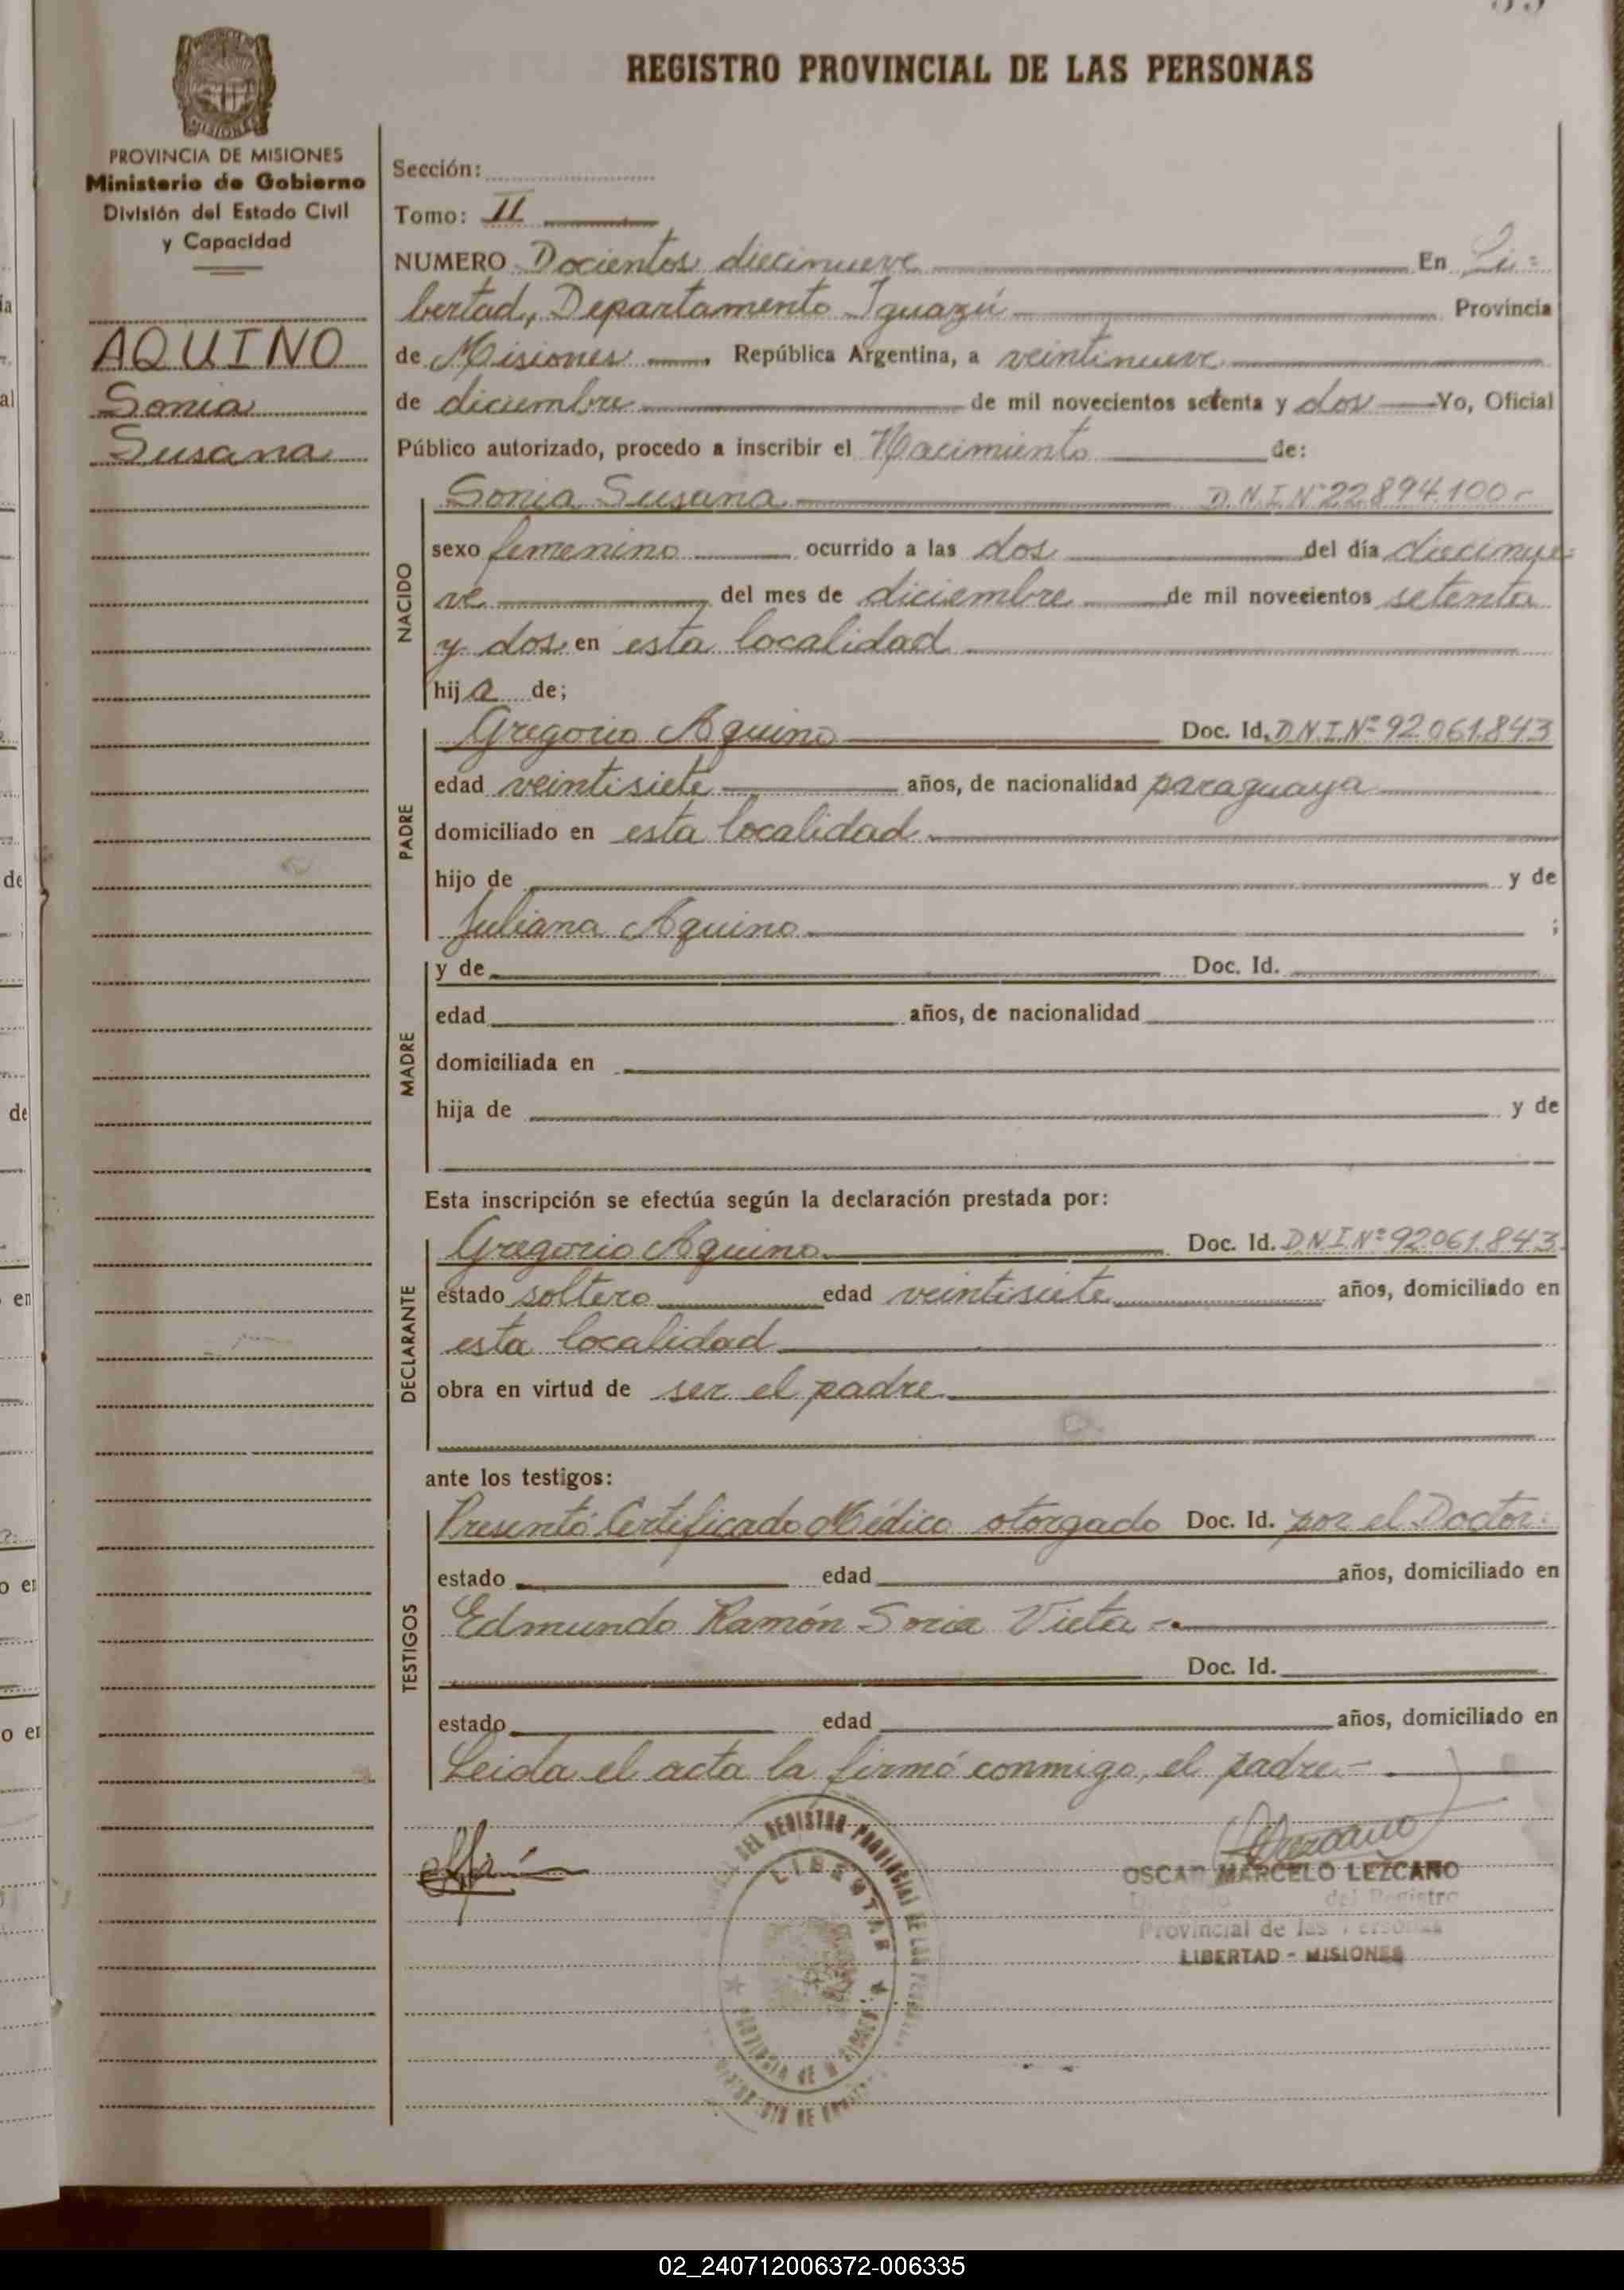 REGISTRO PROVINCIAL DE LAS PERSONAS
MISIONES
PROVINCIA DE MISIONES
Ministerio de Gobierno
División del Estado Civil
y Capacidad
AQUINO
Sonia
Susana
Sección:
Tomo: II
NUMERO Docientos diecinueve En Li=
bertad, Departamento Iguazú Provincia
de Misiones República Argentina, a veintinueve
de diciembre de mil novecientos setenta y dos Yo, Oficial
Público autorizado, procedo a inscribir el Nacimiento de:
NACIDO
Sonia Susana D.N.I.Nº22894.100
sexo femenino ocurrido a las dos del día diecinue=
ve del mes de diciembre de mil novecientos setenta
y dos en esta localidad
hija de;
PADRE
Gregorio Aquino Doc. Id. D.N.I.Nº 92.061.843
edad veintisiete años, de nacionalidad paraguaya
domiciliado en esta localidad
hijo de y de
Juliana Aquino ;
MADRE
y de Doc. Id.
edad años, de nacionalidad
domiciliada en
hija de y de
Esta inscripción se efectúa según la declaración prestada por:
DECLARANTE
Gregorio Aquino Doc. Id. D.N.I.Nº 92.061.843
estado soltero edad veintisiete años, domiciliado en
esta localidad
obra en virtud de ser el padre
ante los testigos:
TESTIGOS
Presentó Certificado Médico otorgado Doc. Id. por el Doctor:
estado edad años, domiciliado en
Edmundo Ramón Soria Vieta -.
Doc. Id.
estado edad años, domiciliado en
Leida el acta la firmó conmigo, el padre.-
DEL REGISTRO PROVINCIAL DE LAS
LIBERTAD
OSCAR MARCELO LEZCANO
del Registro
Provincial de las Personas
LIBERTAD - MISIONES
02_240712006372-006335